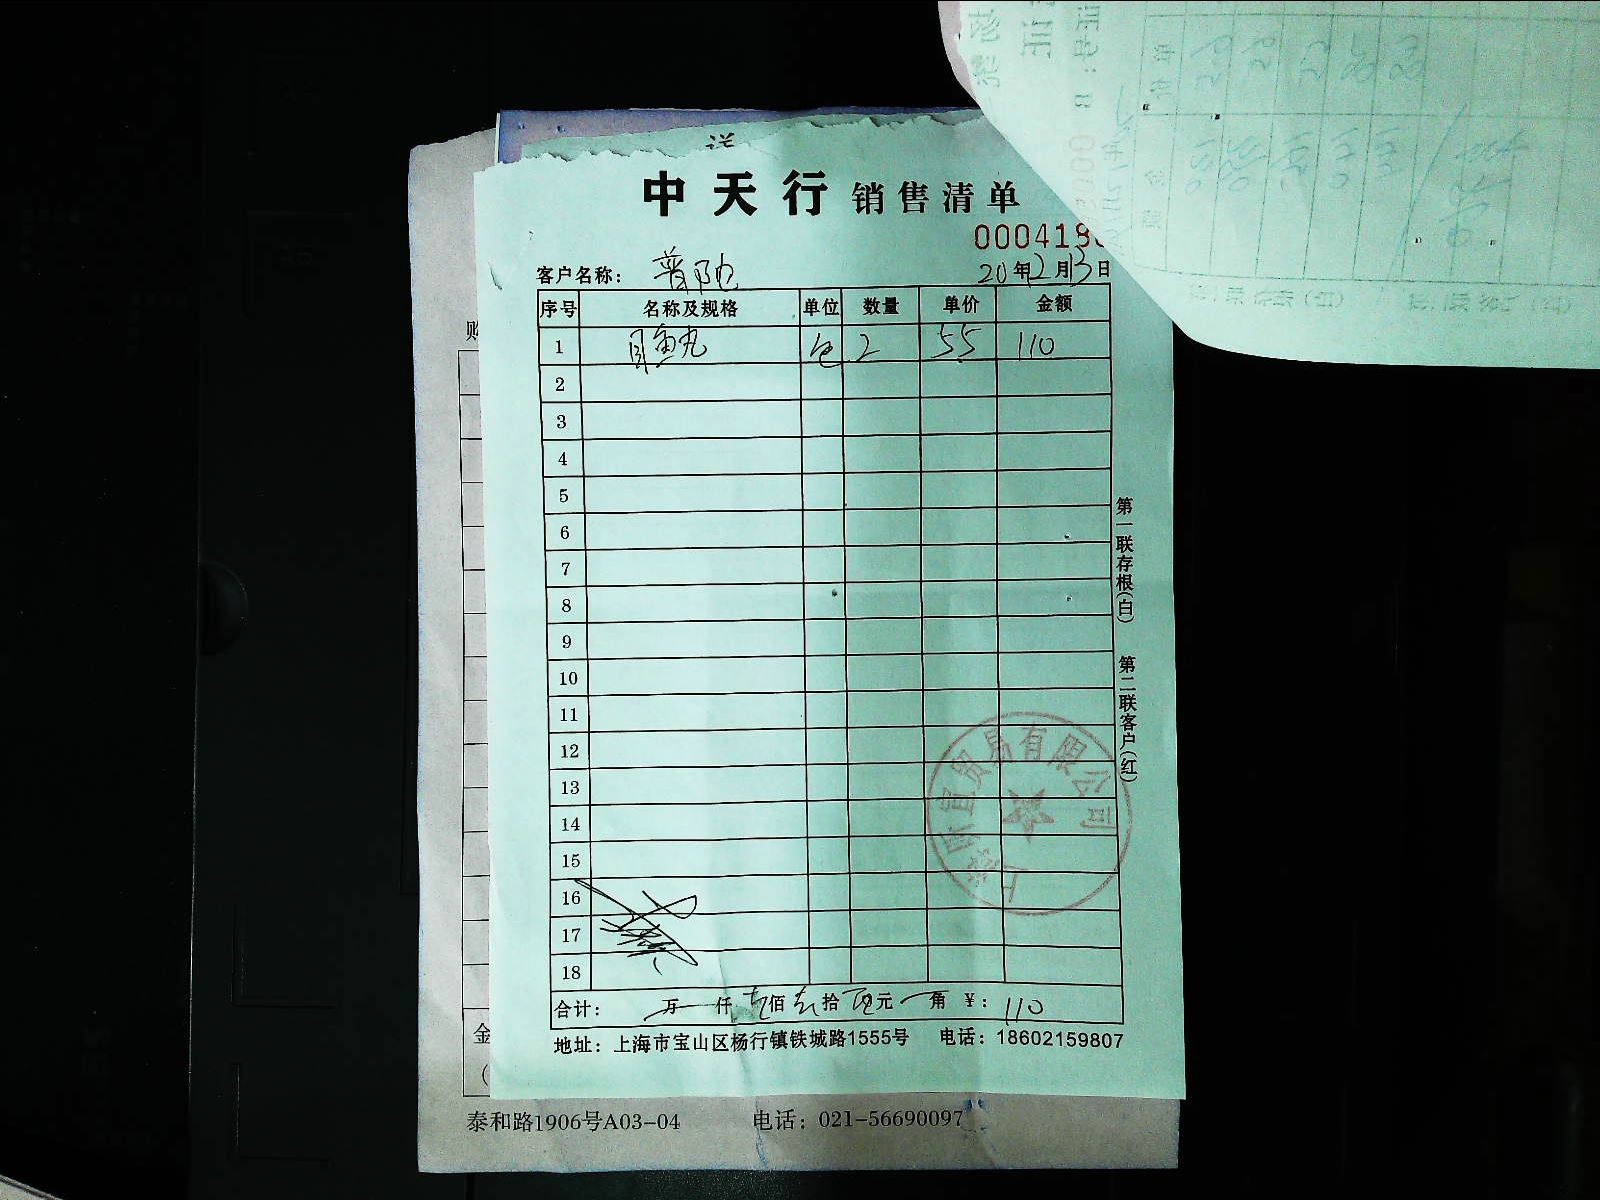 中天行 销售清单
000419
客户名称： 普陀 20年12月13日
序号 名称及规格 单位 数量 单价 金额
1 鱼丸 包 2 55 110
2
3
4
5
6
7
8
9
10
11
12
13
14
15
16
17
18
合计： 万 仟 壹佰 壹拾 元 角 ¥： 110
地址：上海市宝山区杨行镇铁城路1555号 电话：18602159807
第一联存根(白) 第二联客户(红)
上海 宜贸易有限公司
金
泰和路1906号A03-04 电话：021-56690097